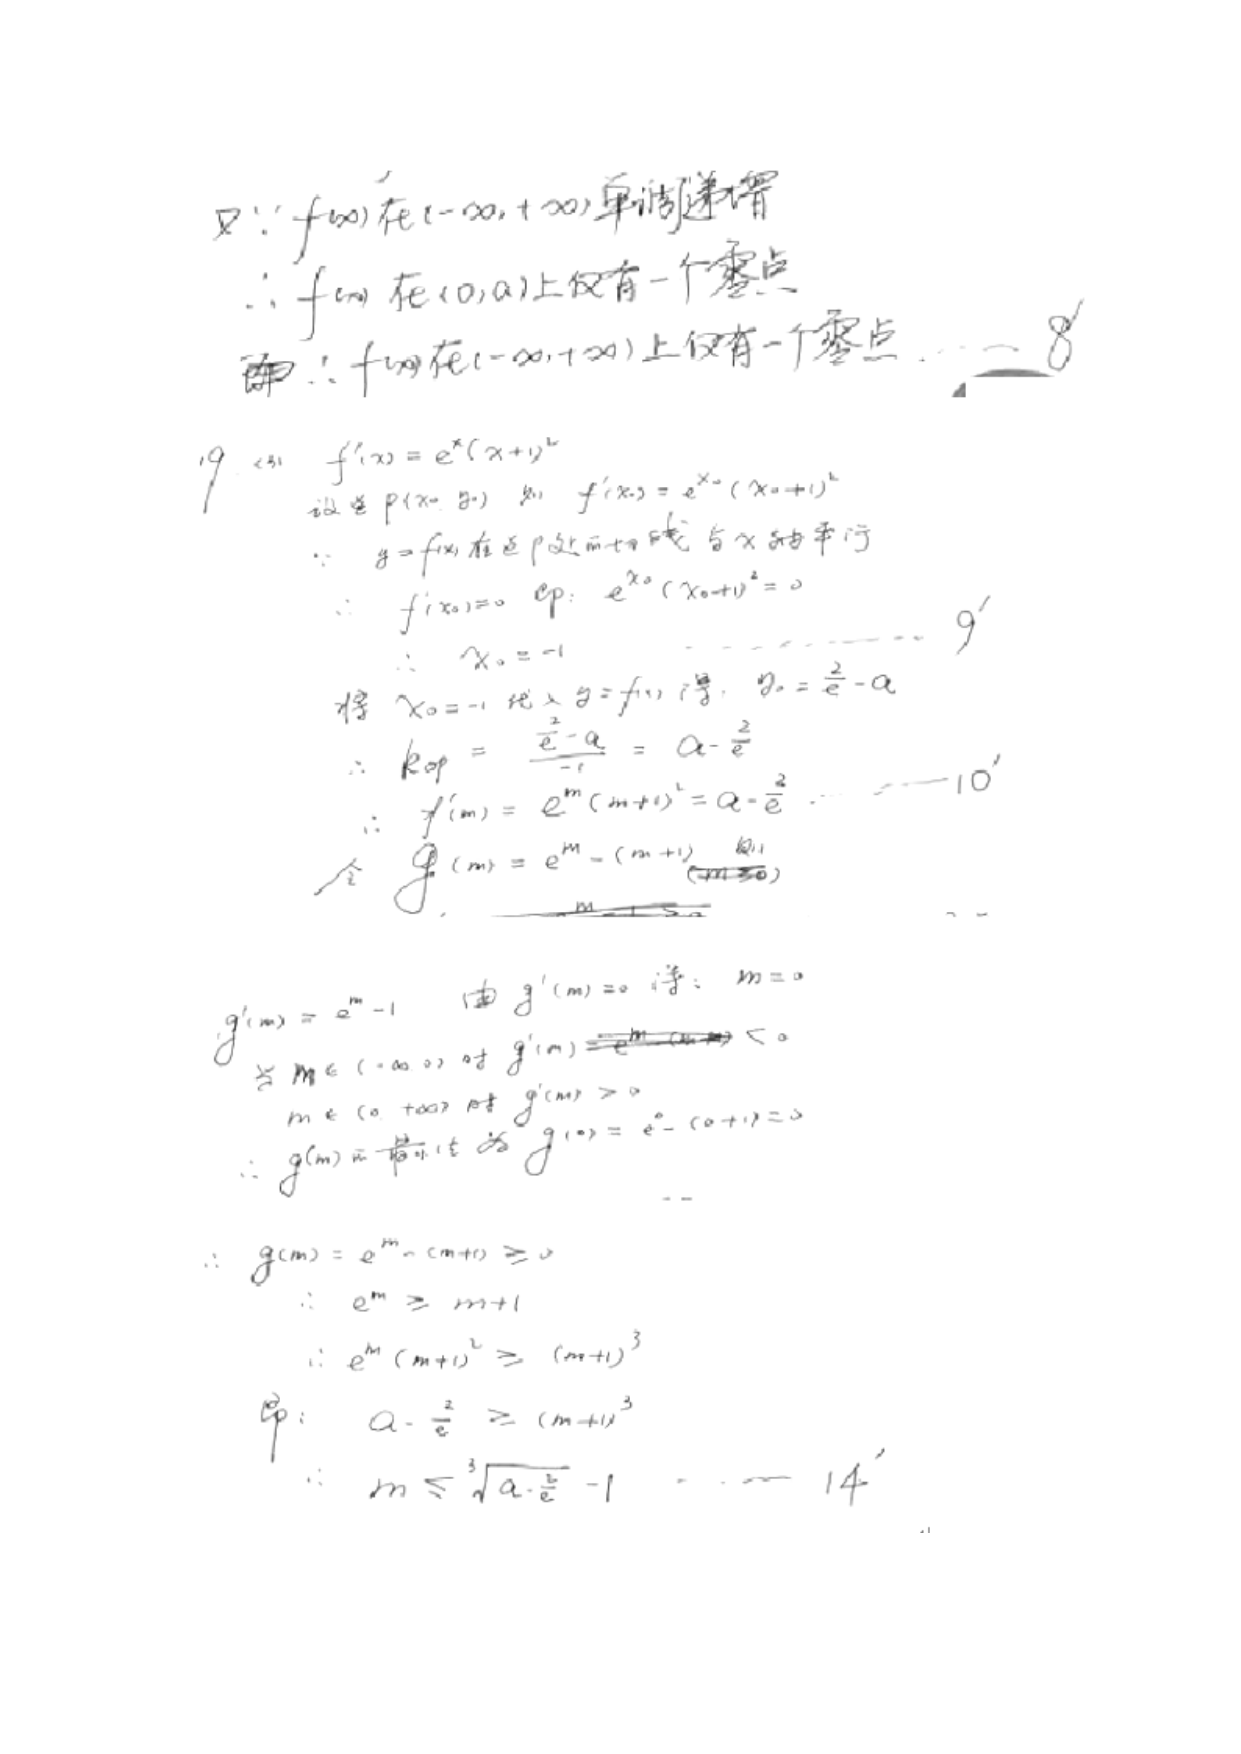 又∵ f(x)在(-∞,+∞)单调递增
∴ f(x) 在(0,a)上仅有一个零点
∴ f(x)在(-∞,+∞)上仅有一个零点 …… 8′
19 (3) f′(x) = eˣ(x+1)²
设点P(x₀, y₀) 则 f′(x₀) = e^{x₀}(x₀+1)²
∵ y=f(x)在点P处的切线与x轴平行
∴ f′(x₀)=0 即: e^{x₀}(x₀+1)²=0
∴ x₀=-1 …… 9′
将 x₀=-1 代入 y=f(x) 得, y₀ = 2/e - a
∴ k_{op} = (2/e - a)/(-1) = a - 2/e
∴ f′(m) = e^m(m+1)² = a - 2/e …… 10′
令 g(m) = e^m - (m+1) 则
g′(m) = e^m - 1 由 g′(m)=0 得: m=0
当 m∈(-∞,0) 时 g′(m) < 0
m∈(0,+∞) 时 g′(m) > 0
∴ g(m)的最小值为 g(0) = e⁰-(0+1)=0
∴ g(m) = e^m - (m+1) ≥ 0
∴ e^m ≥ m+1
∴ e^m(m+1)² ≥ (m+1)³
即: a - 2/e ≥ (m+1)³
∴ m ≤ ∛(a - 2/e) - 1 …… 14′